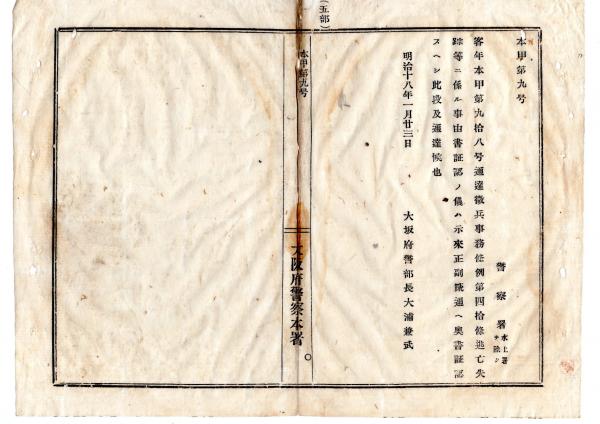 本甲第九号
警察署 水上署ヲ除ク
客年本甲第九拾八号通達徴兵事務条例第四拾条逃亡失
踪等ニ係ル事由書証認ノ儀ハ示来正副貳通ヘ奥書証認
スヘシ此段及通達候也
明治十八年一月廿三日
大坂府警部長大浦兼武
(五部)
本甲第九号
大阪府警察本署